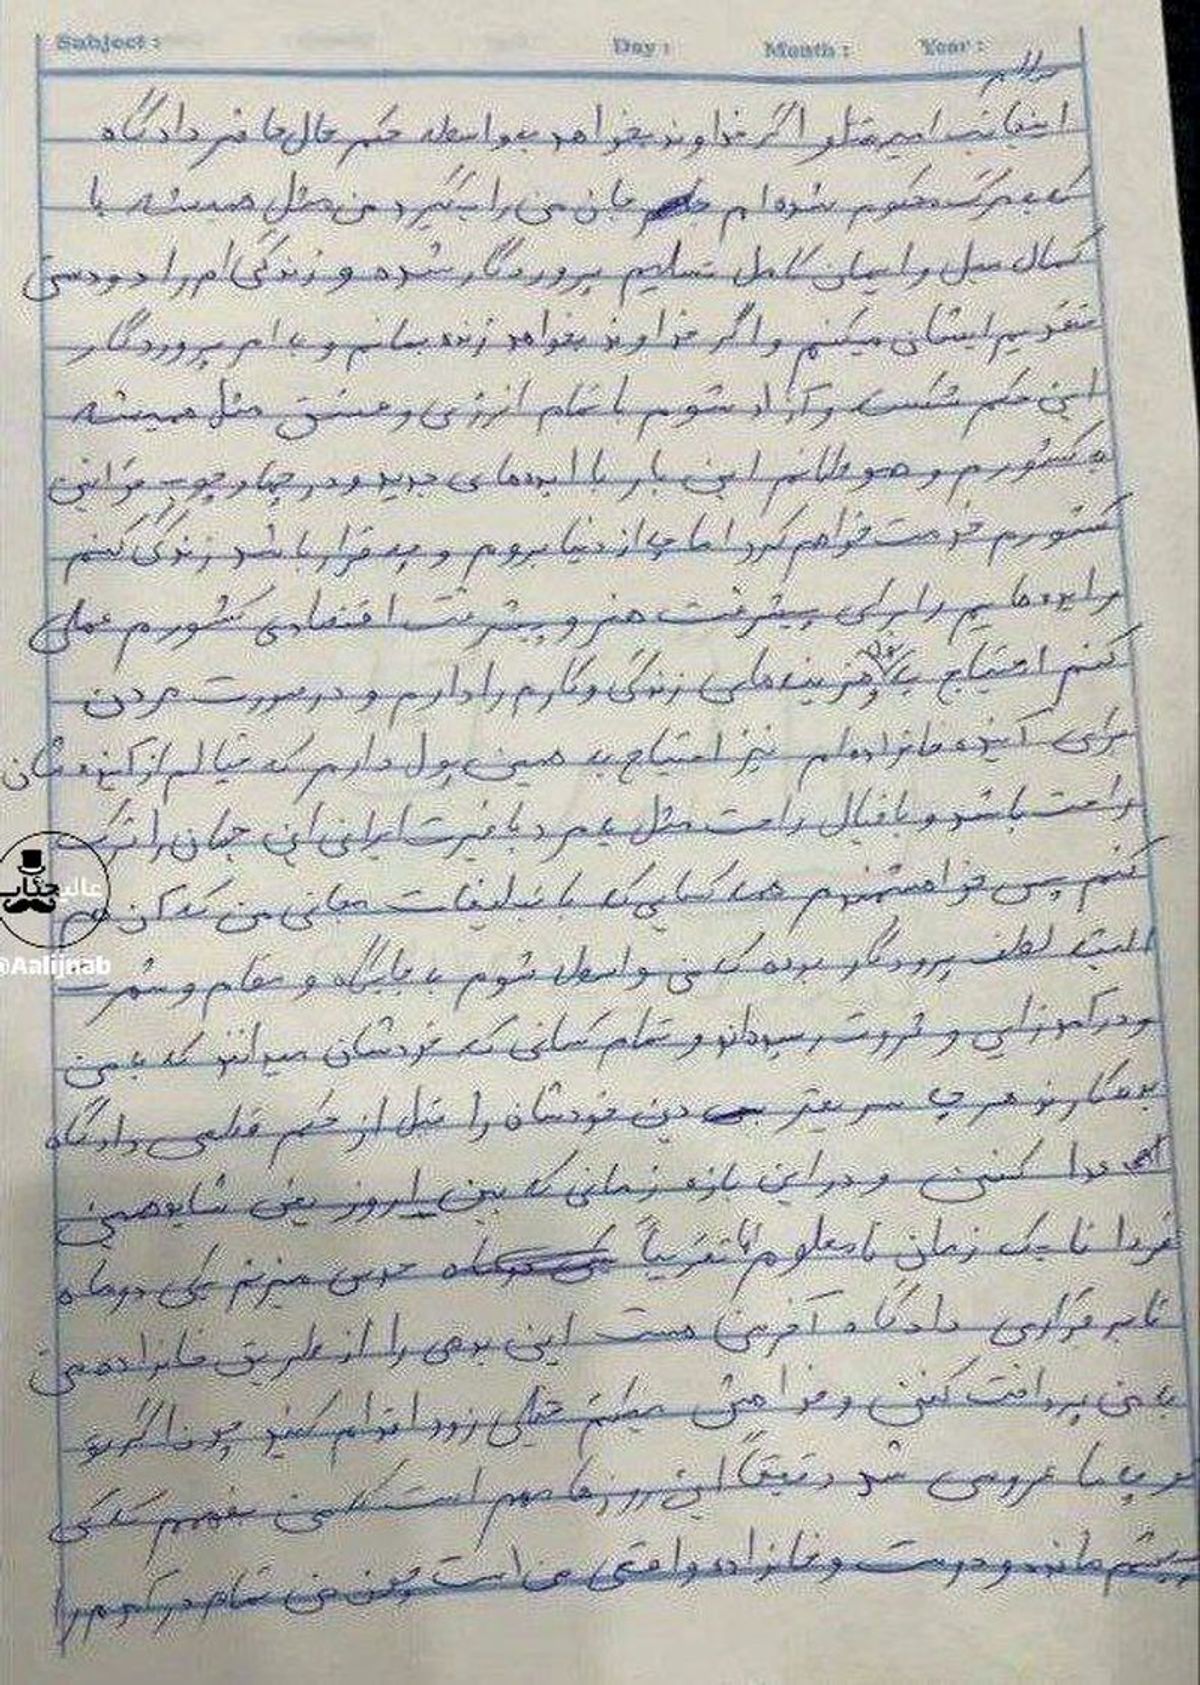 Subject : Day : Month : Year :
سلام
اینجانب امیر مقصودلو اگر خداوند بخواهد به واسطه حکم حال حاضر دادگاه
که به مرگ محکوم شده ام جان من را بگیرد من مثل همیشه با
کمال میل و ایمان کامل تسلیم پروردگار شده و زندگی ام را دو دستی
تقدیم ایشان میکنم و اگر خداوند بخواهد زنده بمانم و به امر پروردگار
این حکم شکسته و آزاد شوم با تمام انرژی و عشق مثل همیشه
به کشورم و هموطنانم این بار با ایده های جدید و در چهارچوب قوانین
کشورم خدمت خواهم کرد اما چه از دنیا بروم و چه قرار باشد زندگی کنم
و ایده هایم را برای پیشرفت هنر و پیشرفت اقتصادی کشورم عملی
کنم احتیاج به هزینه های زندگی و کارم را دارم و در صورت مردن
برای آینده خانواده ام نیز احتیاج به همین پول دارم که خیالم از آینده شان
راحت باشد و با خیال راحت مثل یه مرد با غیرت ایرانی این جهان را ترک
کنم پس خواهشمندم همه کسایی که با تبلیغات مجانی من که آن هم
البته لطف پروردگار بوده که من واسطه شوم به جایگاه و مقام و شهرت
و درآمدزایی و ثروت رسیداند و تمام کسانی که خودشان میدانند که به من
بدهکارند هر چه سریعتر دین خودشان را قبل از حکم قطعی دادگاه
ادا کنن و در این بازه زمانی که بین امروز یعنی شاید همین
فردا تا یک زمان نامعلوم اما تقریباً حدس میزنم یکی دو ماه
تا برقراری دادگاه آخر من هست این بدهی را از طریق خانواده من
به من پرداخت کنن و خواهش میکنم خیلی زود اقدام کنید چون اگر
دقیقاً این روزها مهم است که من بفهمم کی
پیشم مانده و دوست و خانواده واقعی من است چون من تمام
عالیجناب
@Aalijnab